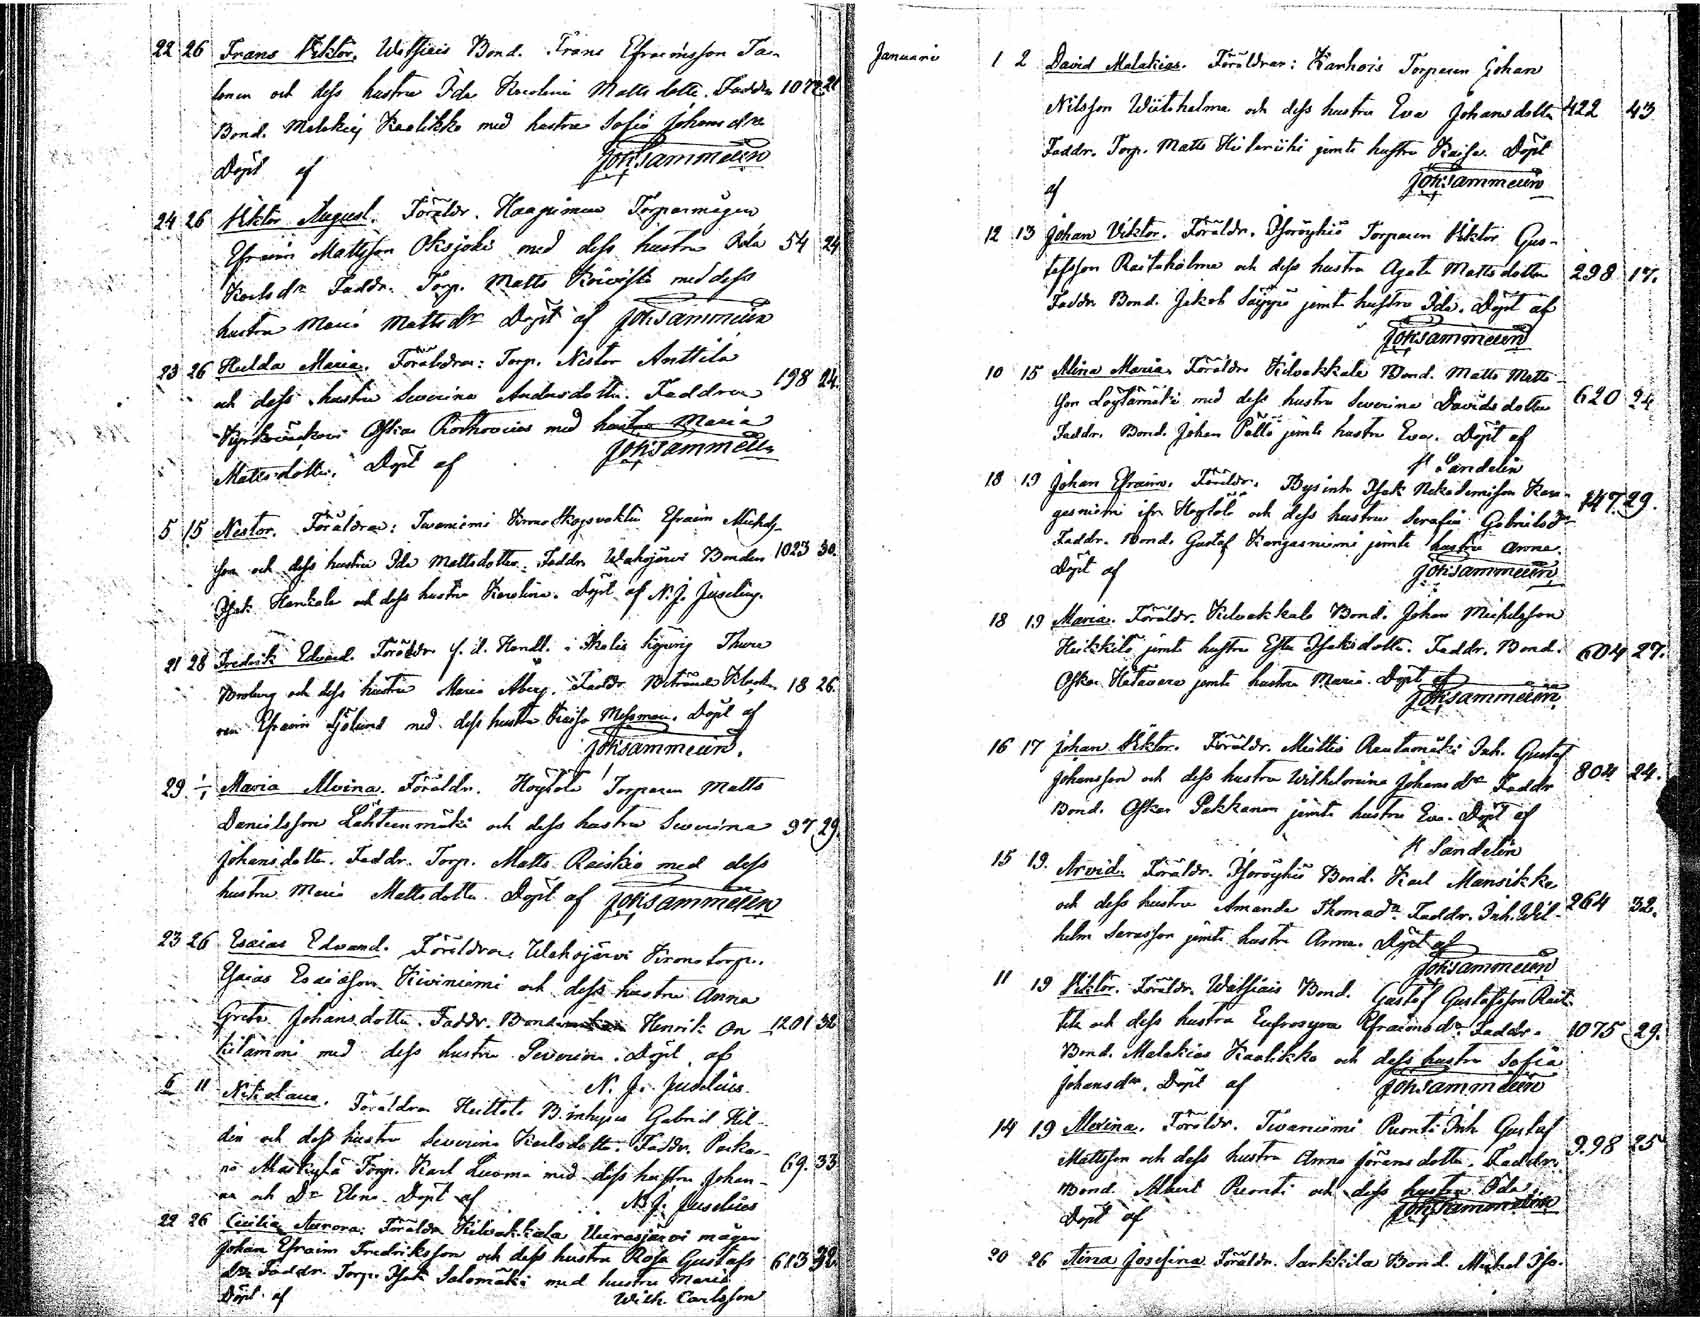 22 26 Frans Viktor. Bond. Frans Efraimsson Ta-
lonen och dess hustru Ida Karolina Matts dotter. Faddr. 1072 21
Bond. Malakij Kaalikko med hustru Sofia Johans dr
Döpt af Joh: Sammelin
24 26 Viktor August. Föräldr. Haapimaa Torparmågen
Efraim Mattsson Oksjoki med dess hustru Ida 54 24
Karls dr Faddr. Torp. Matts Koivisto med dess
hustru Maria Matts dr Döpt af Joh: Sammelin
23 26 Hulda Maria. Föräldrar: Torp. Nestor Anttila
och dess hustru Severina Andersdotter. Faddrar 198 24.
Oskar med hustru Maria
Mattsdotter. Döpt af Joh: Sammelin
5 15 Nestor. Föräldrar: Tevaniemi Efraim Michels-
son och dess hustru Ida Mattsdotter. Faddr. Wahojärvi Bonden 1023 30.
Isak Hankala och dess hustru Karolina. Döpt af N. J. Juselius.
21 28 Fredrik Edvard. Föräldr. f. d. Handl. i Ikalis Köping Thure
Broberg och dess hustru Maria Åberg. Faddr. 18 26.
Efraim Sjölund med dess hustru Kaisa Messman. Döpt af
Joh: Sammelin.
29 1/1 Maria Alvina. Föräldr. Höytölä Torparen Matts
Danielsson Lähteenmäki och dess hustru Severina 97 29.
Johansdotter. Faddr. Torp. Matts Raiskio med dess
hustru Maria Mattsdotter. Döpt af Joh: Sammelin
23 26 Esaias Edvard. Föräldrar. Wahojärvi Kronotorp.
Esaias Esaiasson Kiviniemi och dess hustru Anna
Greta Johansdotter. Faddr. Bond Henrik On- 1201 32
kilammi med dess hustru Severina. Döpt af
N. J. Juselius.
6 11 Nikolaus. Föräldrar Heittola B. inhyses Gabriel Hil-
dén och dess hustru Severina Karlsdotter. Faddr. Parka-
no Maskylä Torp. Karl Luoma med dess hustru Johan- 69. 33
na och Dr Elena. Döpt af N. J. Juselius
22 26 Cecilia Aurora. Föräldr. Kilvakkala Uurasjärvi mågen
Johan Efraim Fredriksson och dess hustru Rosa Gustafs 613 32
Dr Faddr. Torp. Isak Salomäki med hustru Maria
Döpt af Wilh. Carlsson
Januari 1 2 David Malakias. Föräldrar: Karhois Torparen Johan
Nilsson Wiitahalma och dess hustru Eva Johansdotter 422 43
Faddr. Torp. Matts jemte hustru Kaisa. Döpt
af Joh: Sammelin
12 13 Johan Viktor. Föräldr. Isoröyhiö Torparen Viktor Gus-
tafsson Raitahalma och dess hustru Agata Mattsdotter 298 17.
Faddr. Bond. Jakob Säppi jemte hustru Ida. Döpt af
Joh: Sammelin
10 15 Alina Maria. Föräldr. Kilvakkala Bond. Matts Matts-
son Löytämäki med dess hustru Severina Davidsdotter 620 24
Faddr. Bond. Johan Pälli jemte hustru Eva. Döpt af
K Sandelin
18 19 Johan Efraim. Föräldr. Bysinh. Isak Nikodemisson Kan-
gasniemi ifr. Höytölä och dess hustru Serafia Gabriels Dr 147. 29.
Faddr. Bond. Gustaf Kangasniemi jemte hustru Anna.
Döpt af Joh: Sammelin
18 19 Maria. Föräldr. Kilvakkala Bond. Johan Michelsson
Heikkilä jemte hustru Ester Isaksdotter. Faddr. Bond. 604 27.
Oskar Hatavara jemte hustru Maria. Döpt af
Joh: Sammelin
16 17 Johan Viktor. Föräldr. Miettis Rautamäki Inh. Gustaf
Johansson och dess hustru Wilhelmina Johans dr Faddr 804 24.
Bond. Oskar Pakkanen jemte hustru Eva. Döpt af
K Sandelin
15 19. Arvid. Föräldr. Isoröyhiö Bond. Karl Mansikka
och dess hustru Amanda Thomas dr. Faddr. Inh. Wil- 264 32.
helm Savasson jemte hustru Anna. Döpt af
Joh: Sammelin
11 19 Viktor. Föräldr. Watsiais Bond. Gustaf Gustafsson Rait-
tila och dess hustru Eufrosyna Efraims dr Faddr. 1075 29.
Bond. Malakias Kaalikko och dess hustru Sofia
Johans dr. Döpt af Joh: Sammelin
14 19 Alvina. Föräldr. Tevaniemi Puonti Inh Gustaf
Mattsson och dess hustru Anna Göransdotter. Faddr. 998 25
Bond. Albert Puonti och dess hustru Ida
Döpt af Joh: Sammelin
20 26 Aina Josefina. Föräldr. Sarkkila Bond. Mickel Iso-